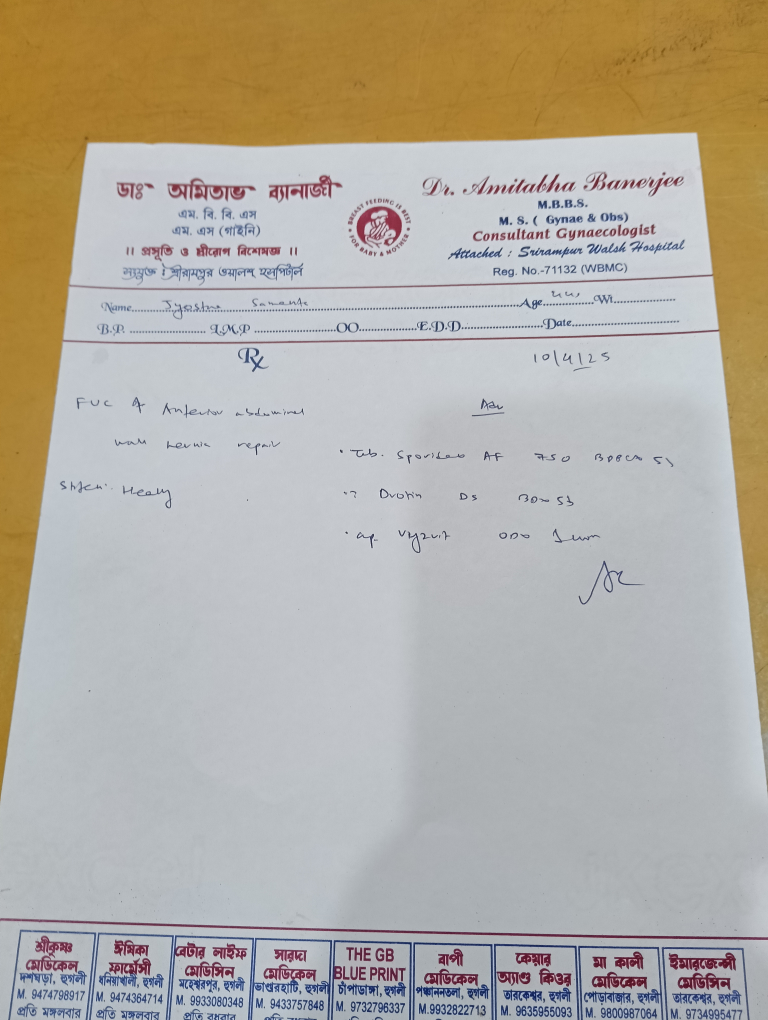 ডাঃ অমিতাভ ব্যানার্জী
এম. বি. বি. এস
এম. এস (গাইনি)
।। প্রসূতি ও স্ত্রীরোগ বিশেষজ্ঞ ।।
সংযুক্ত : শ্রীরামপুর ওয়ালশ হসপিটাল
BREAST FEEDING IS BEST
FOR BABY & MOTHER
Dr. Amitabha Banerjee
M.B.B.S.
M. S. ( Gynae & Obs)
Consultant Gynaecologist
Attached : Srirampur Walsh Hospital
Reg. No.-71132 (WBMC)
Name Jyostna Samanta Age Wt.
B.P. L.M.P OO E.D.D Date
Rx
10/4/25
FUC of Anterior abdominal
wall hernia repair
Healthy
Adv
Tab. Sporidex AF 750
Drotin DS
Cap.
শ্রীকৃষ্ণ
মেডিকেল
দশঘড়া, হুগলী
M. 9474798917
প্রতি মঙ্গলবার
ঈষিকা
ফার্মেসী
ধনিয়াখালী, হুগলী
M. 9474364714
প্রতি মঙ্গলবার
বেটার লাইফ
মেডিসিন
মহেশ্বরপুর, হুগলী
M. 9933080348
প্রতি বুধবার
সারদা
মেডিকেল
ভাণ্ডারহাটি, হুগলী
M. 9433757848
THE GB
BLUE PRINT
চাঁপাডাঙ্গা, হুগলী
M. 9732796337
বাপী
মেডিকেল
পঞ্চাননতলা, হুগলী
M.9932822713
কেয়ার
অ্যাণ্ড কিওর
তারকেশ্বর, হুগলী
M. 9635955093
মা কালী
মেডিকেল
পোড়াবাজার, হুগলী
M. 9800987064
ইমারজেন্সী
মেডিসিন
তারকেশ্বর, হুগলী
M. 9734995477